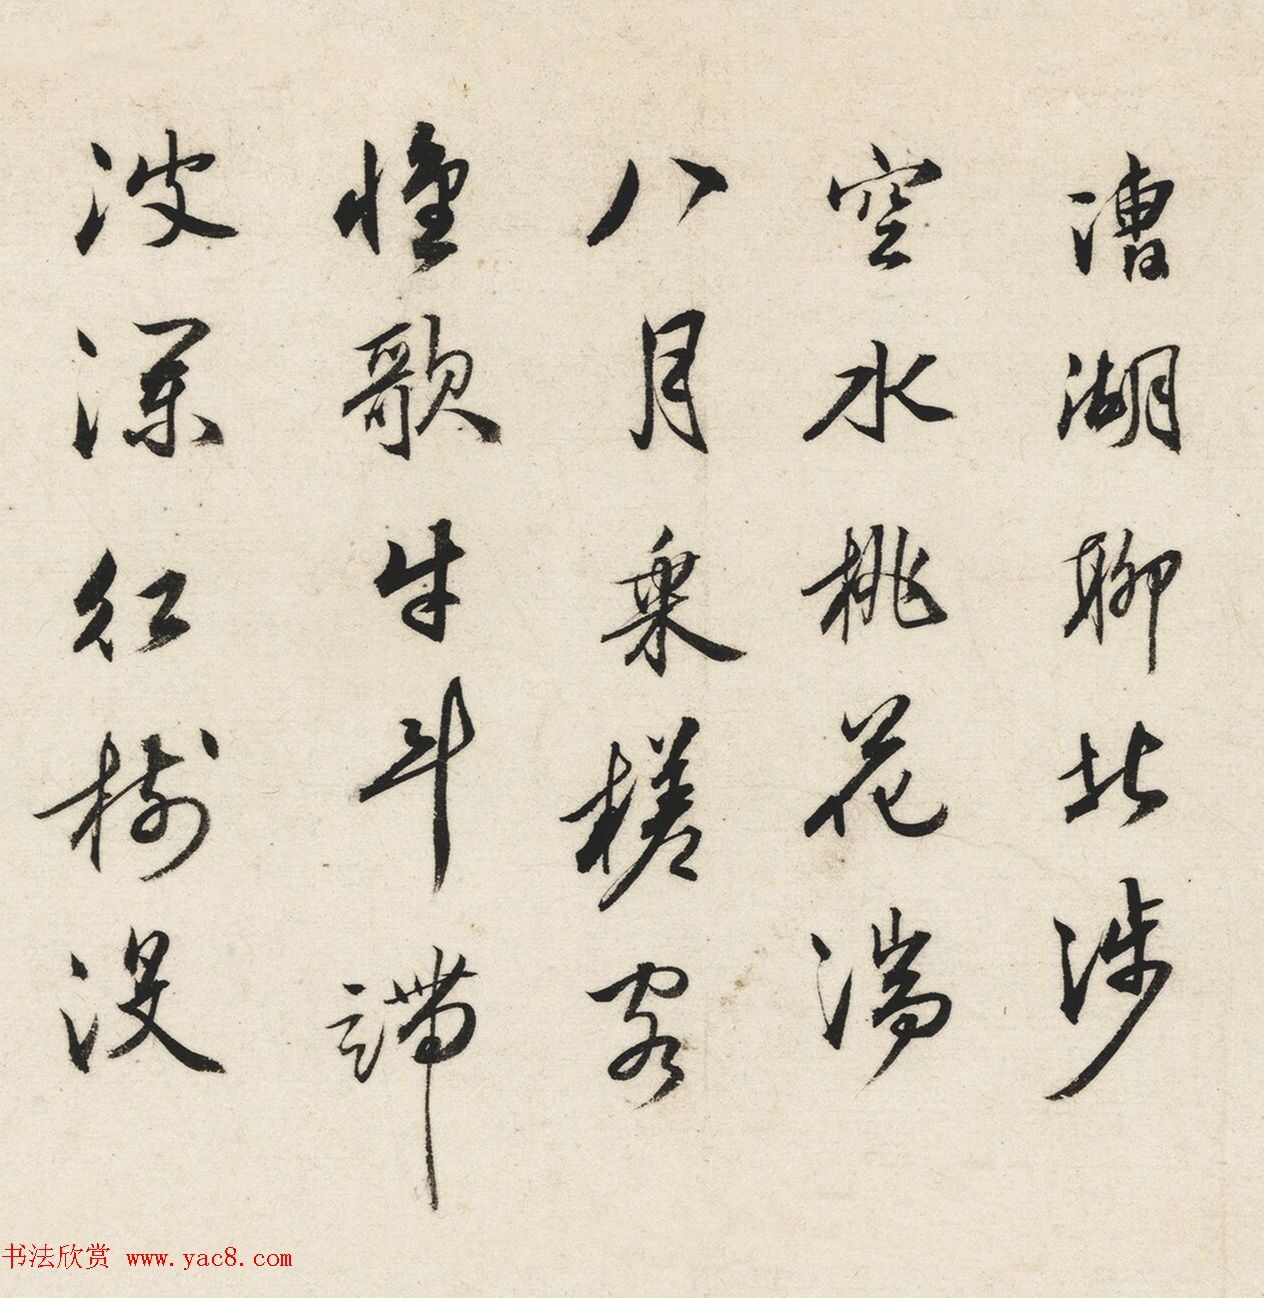 漕湖聊北涉
空水桃花湍
八月乘槎客
櫂歌牛斗端
波深紅樹沒
书法欣赏 www.yac8.com